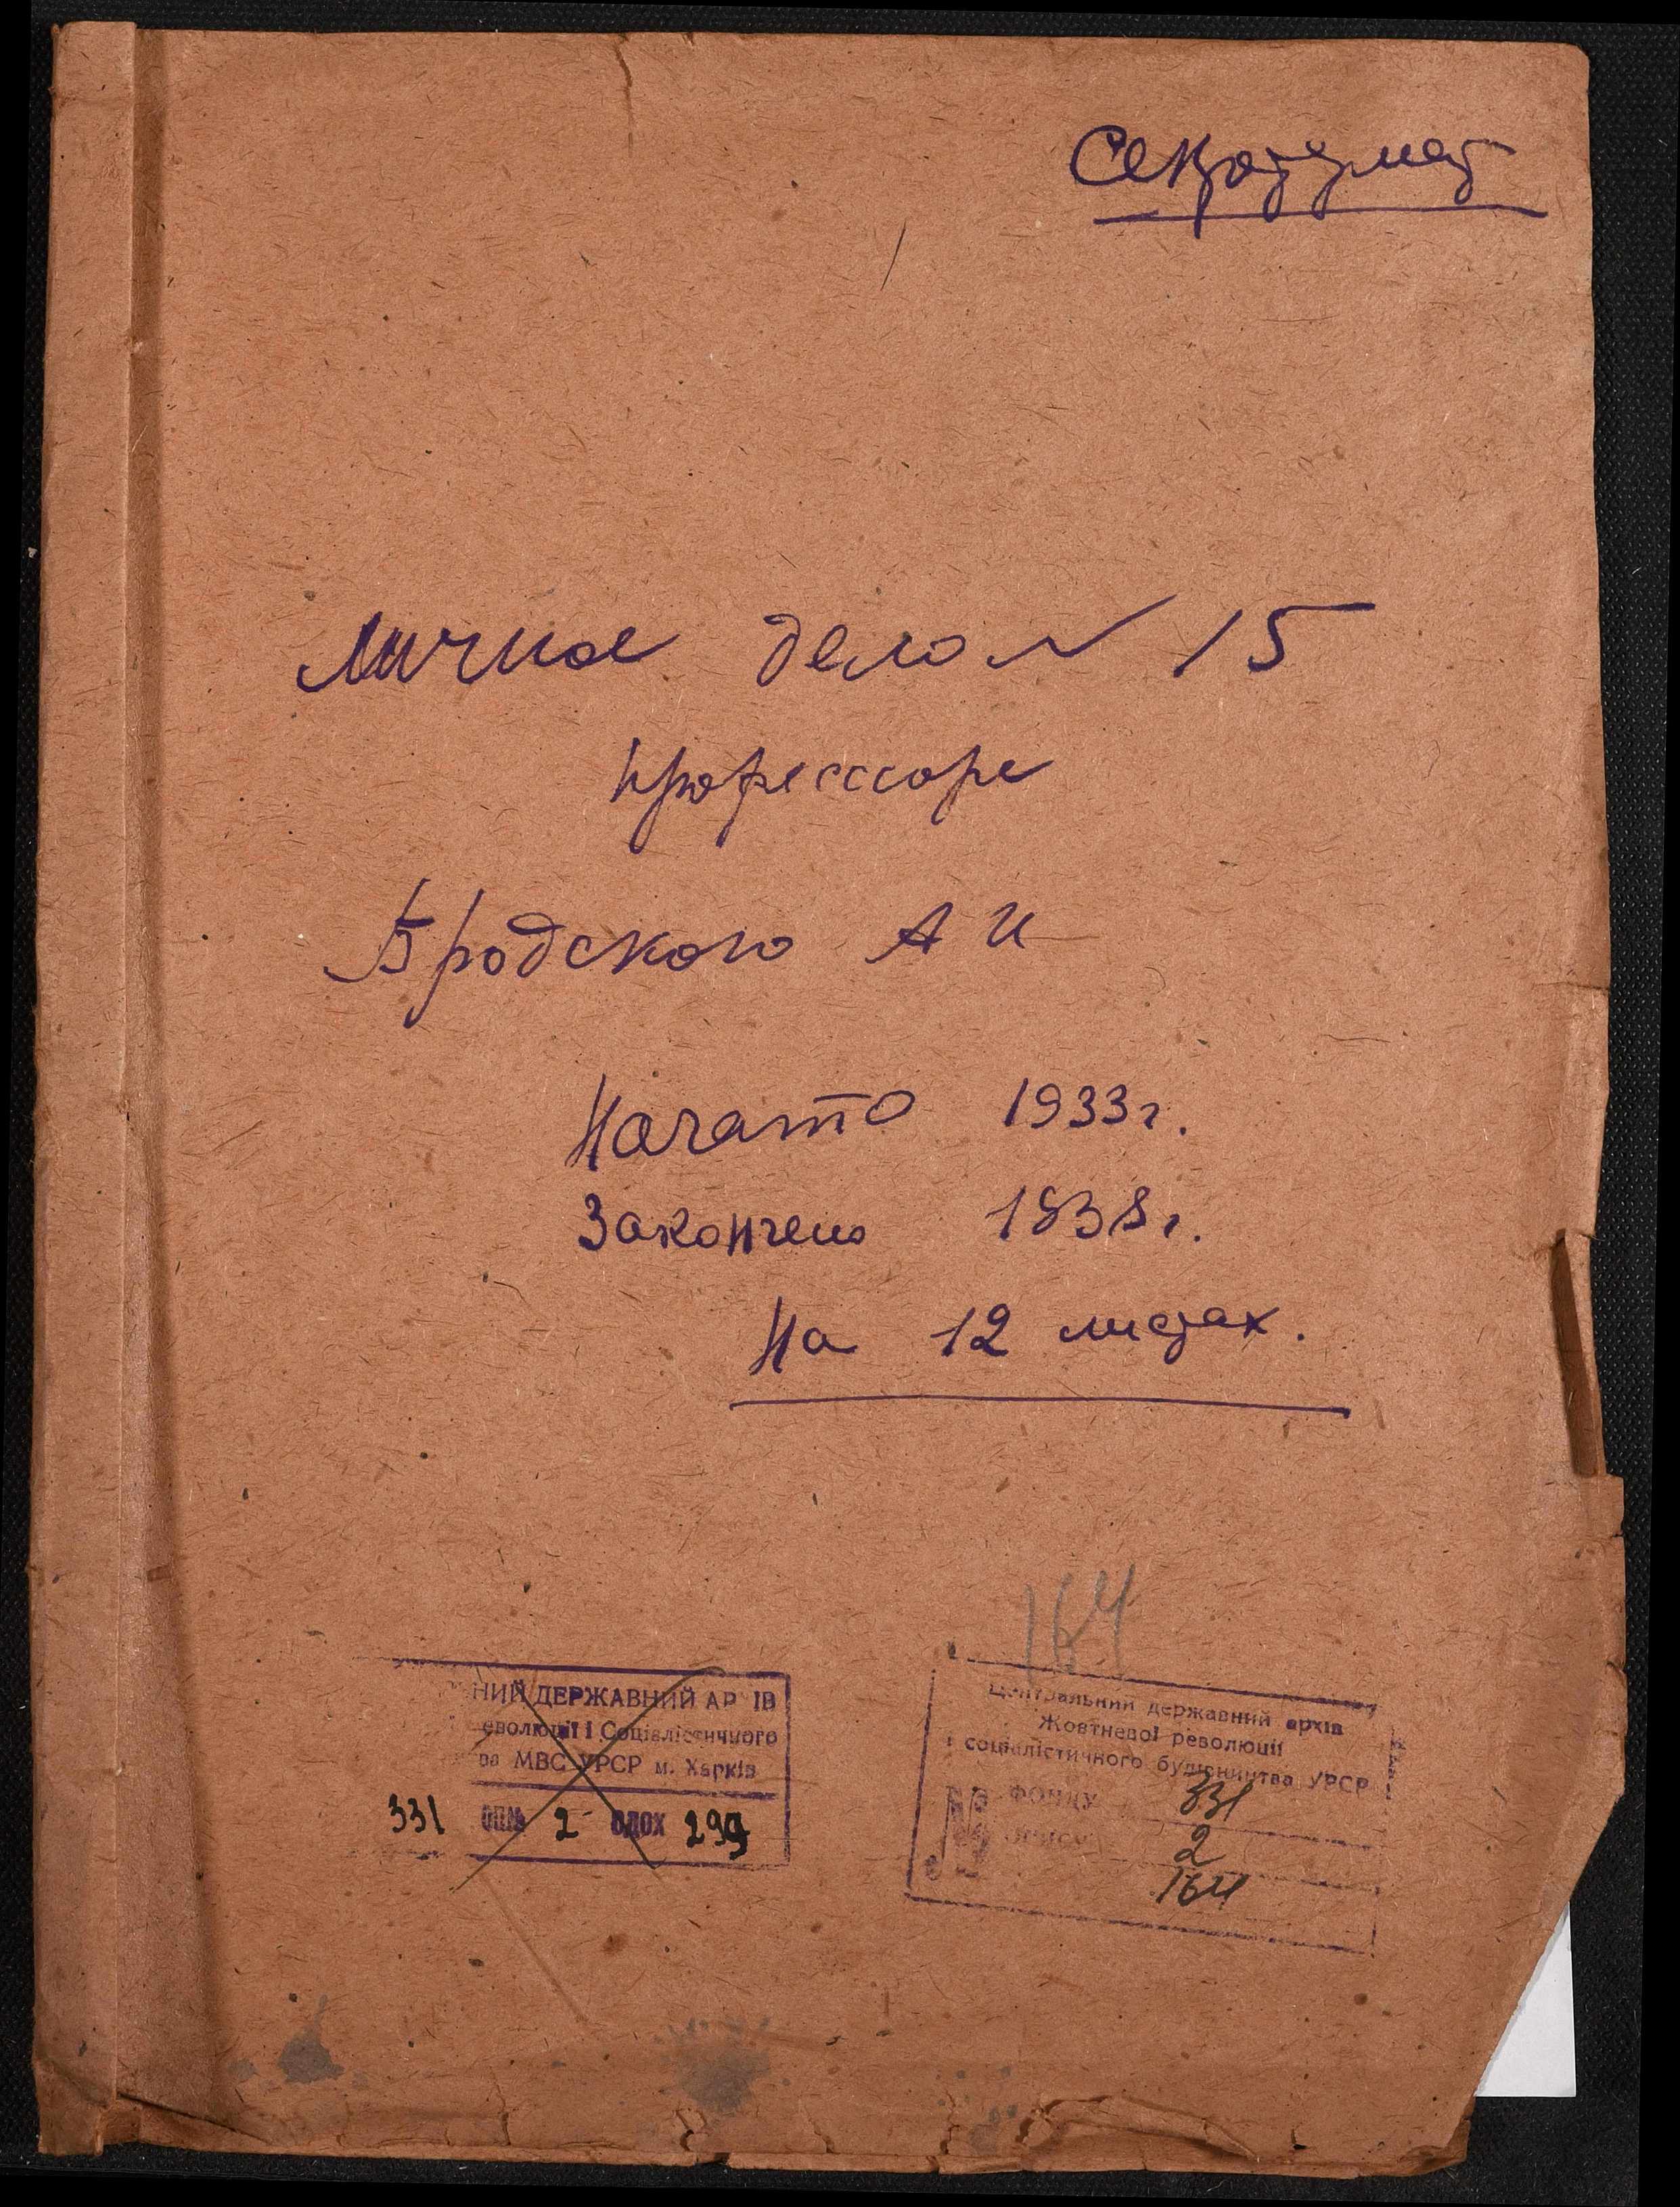 Секретариат
Личное дело № 15
профессора
Бродского А И
Начато 1933 г.
Закончено 1938 г.
На 12 листах.
164
НИЙ ДЕРЖАВНИЙ АР ІВ
еволюції і Соціалістичного
ва МВС УРСР м. Харків
331 ОП№ 2 ОДОХ 299
Центральний державний архів
Жовтневої революції
і соціалістичного будівництва УРСР
№ ФОНДУ 331
ОПИСУ 2
164